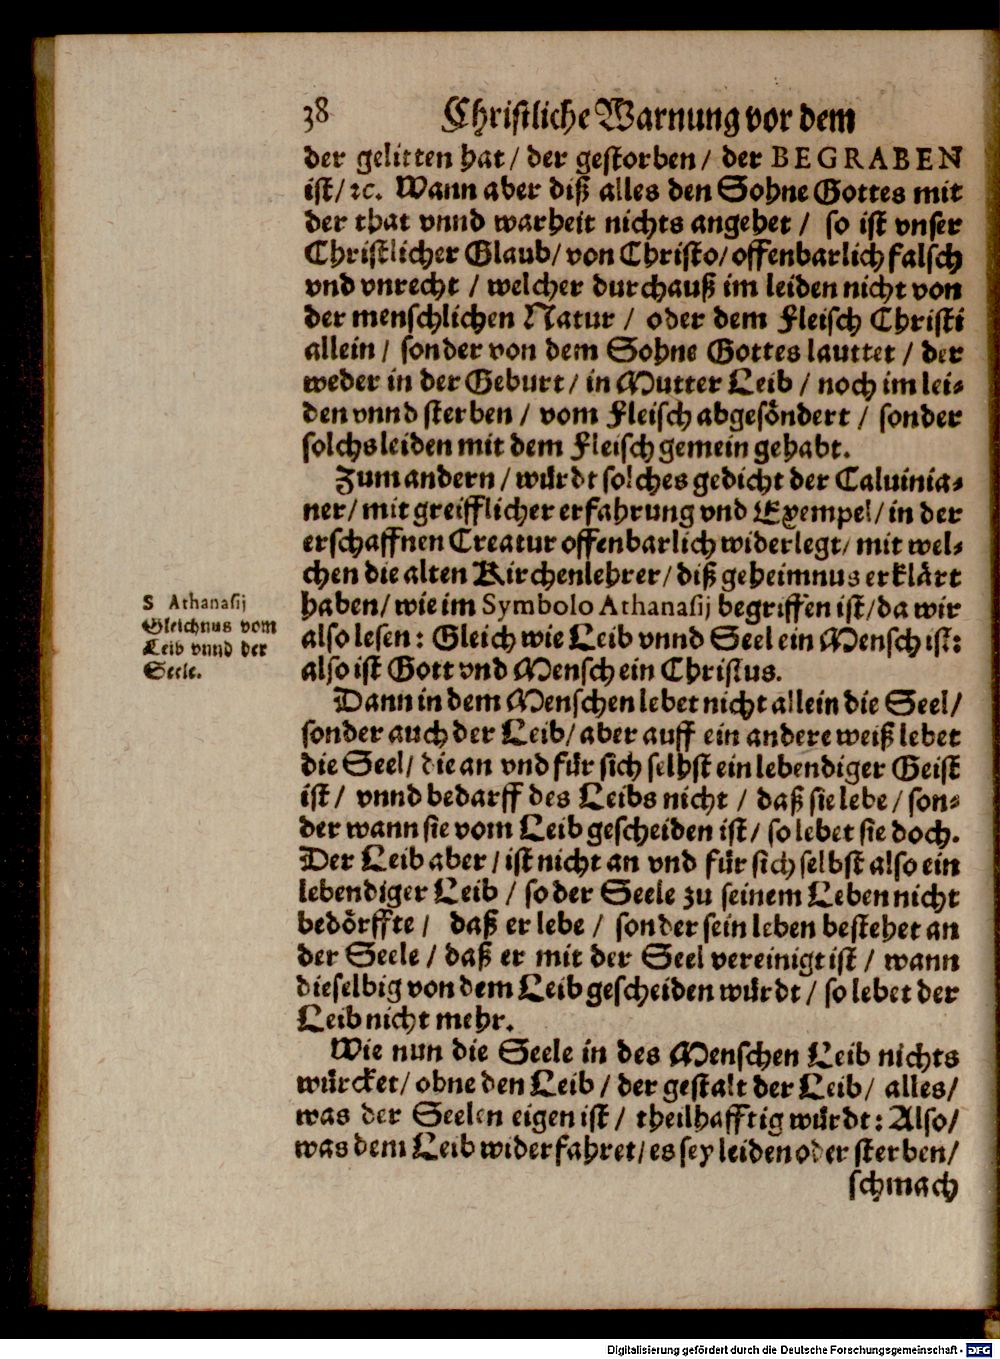 38 Christliche Warnung vor dem
der gelitten hat / der gestorben / der BEGRABEN
ist / ꝛc. Wann aber diß alles den Sohne Gottes mit
der that vnnd warheit nichts angehet / so ist vnser
Christlicher Glaub / von Christo / offenbarlich falsch
vnd vnrecht / welcher durchauß im leiden nicht von
der menschlichen Natur / oder dem Fleisch Christi
allein / sonder von dem Sohne Gottes lauttet / der
weder in der Geburt / in Mutter Leib / noch im lei⸗
den vnnd sterben / vom Fleisch abgesöndert / sonder
solchs leiden mit dem Fleisch gemein gehabt.
Zum andern / würdt solches gedicht der Caluinia⸗
ner / mit greifflicher erfahrung vnd Exempel / in der
erschaffnen Creatur offenbarlich widerlegt / mit wel⸗
chen die alten Kirchenlehrer / diß geheimnus erklärt
haben / wie im Symbolo Athanasij begriffen ist / da wir
also lesen: Gleich wie Leib vnnd Seel ein Mensch ist:
also ist Gott vnd Mensch ein Christus.
S Athanasij
Gleichnus vom
Leib vnnd der
Seele.
Dann in dem Menschen lebet nicht allein die Seel /
sonder auch der Leib / aber auff ein andere weiß lebet
die Seel / die an vnd für sich selbst ein lebendiger Geist
ist / vnnd bedarff des Leibs nicht / daß sie lebe / son⸗
der wann sie vom Leib gescheiden ist / so lebet sie doch.
Der Leib aber / ist nicht an vnd für sich selbst also ein
lebendiger Leib / so der Seele zu seinem Leben nicht
bedörffte / daß er lebe / sonder sein leben bestehet an
der Seele / daß er mit der Seel vereinigt ist / wann
dieselbig von dem Leib gescheiden würdt / so lebet der
Leib nicht mehr.
Wie nun die Seele in des Menschen Leib nichts
würcket / ohne den Leib / der gestalt der Leib / alles /
was der Seelen eigen ist / theilhafftig würdt: Also /
was dem Leib widerfahret / es sey leiden oder sterben /
schmach
Digitalisierung gefördert durch die Deutsche Forschungsgemeinschaft - DFG